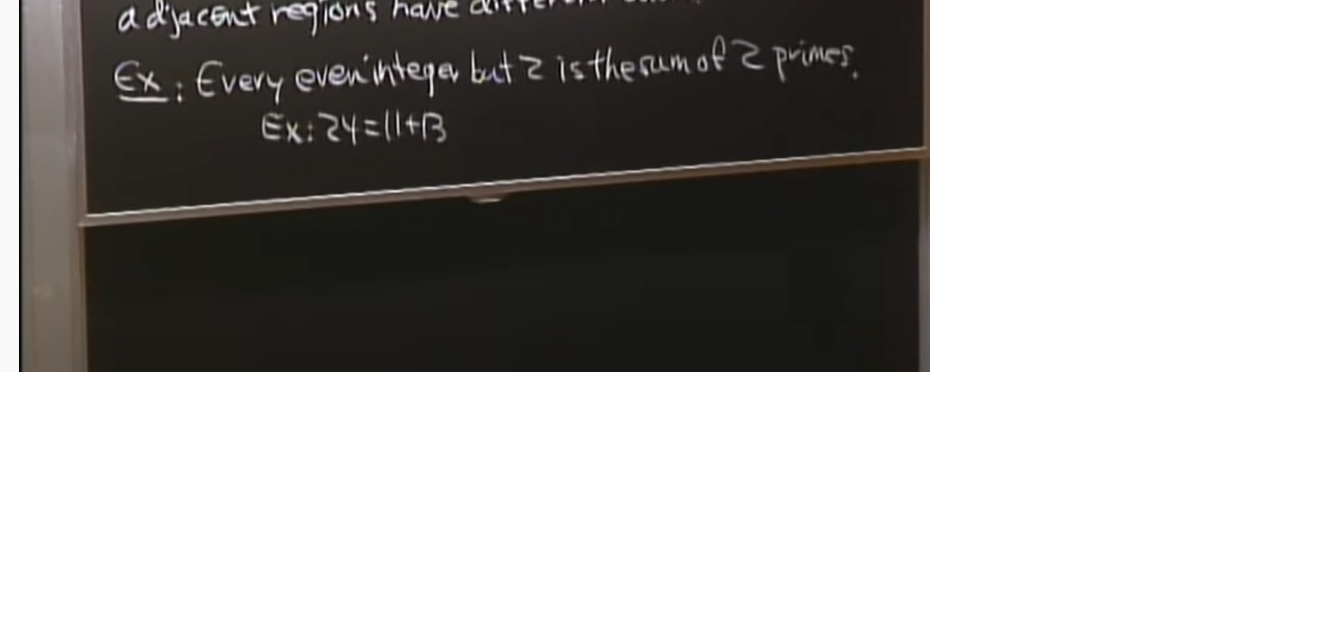 adjacent regions have different
Ex: Every even integer but 2 is the sum of 2 primes.
Ex: 24=11+13